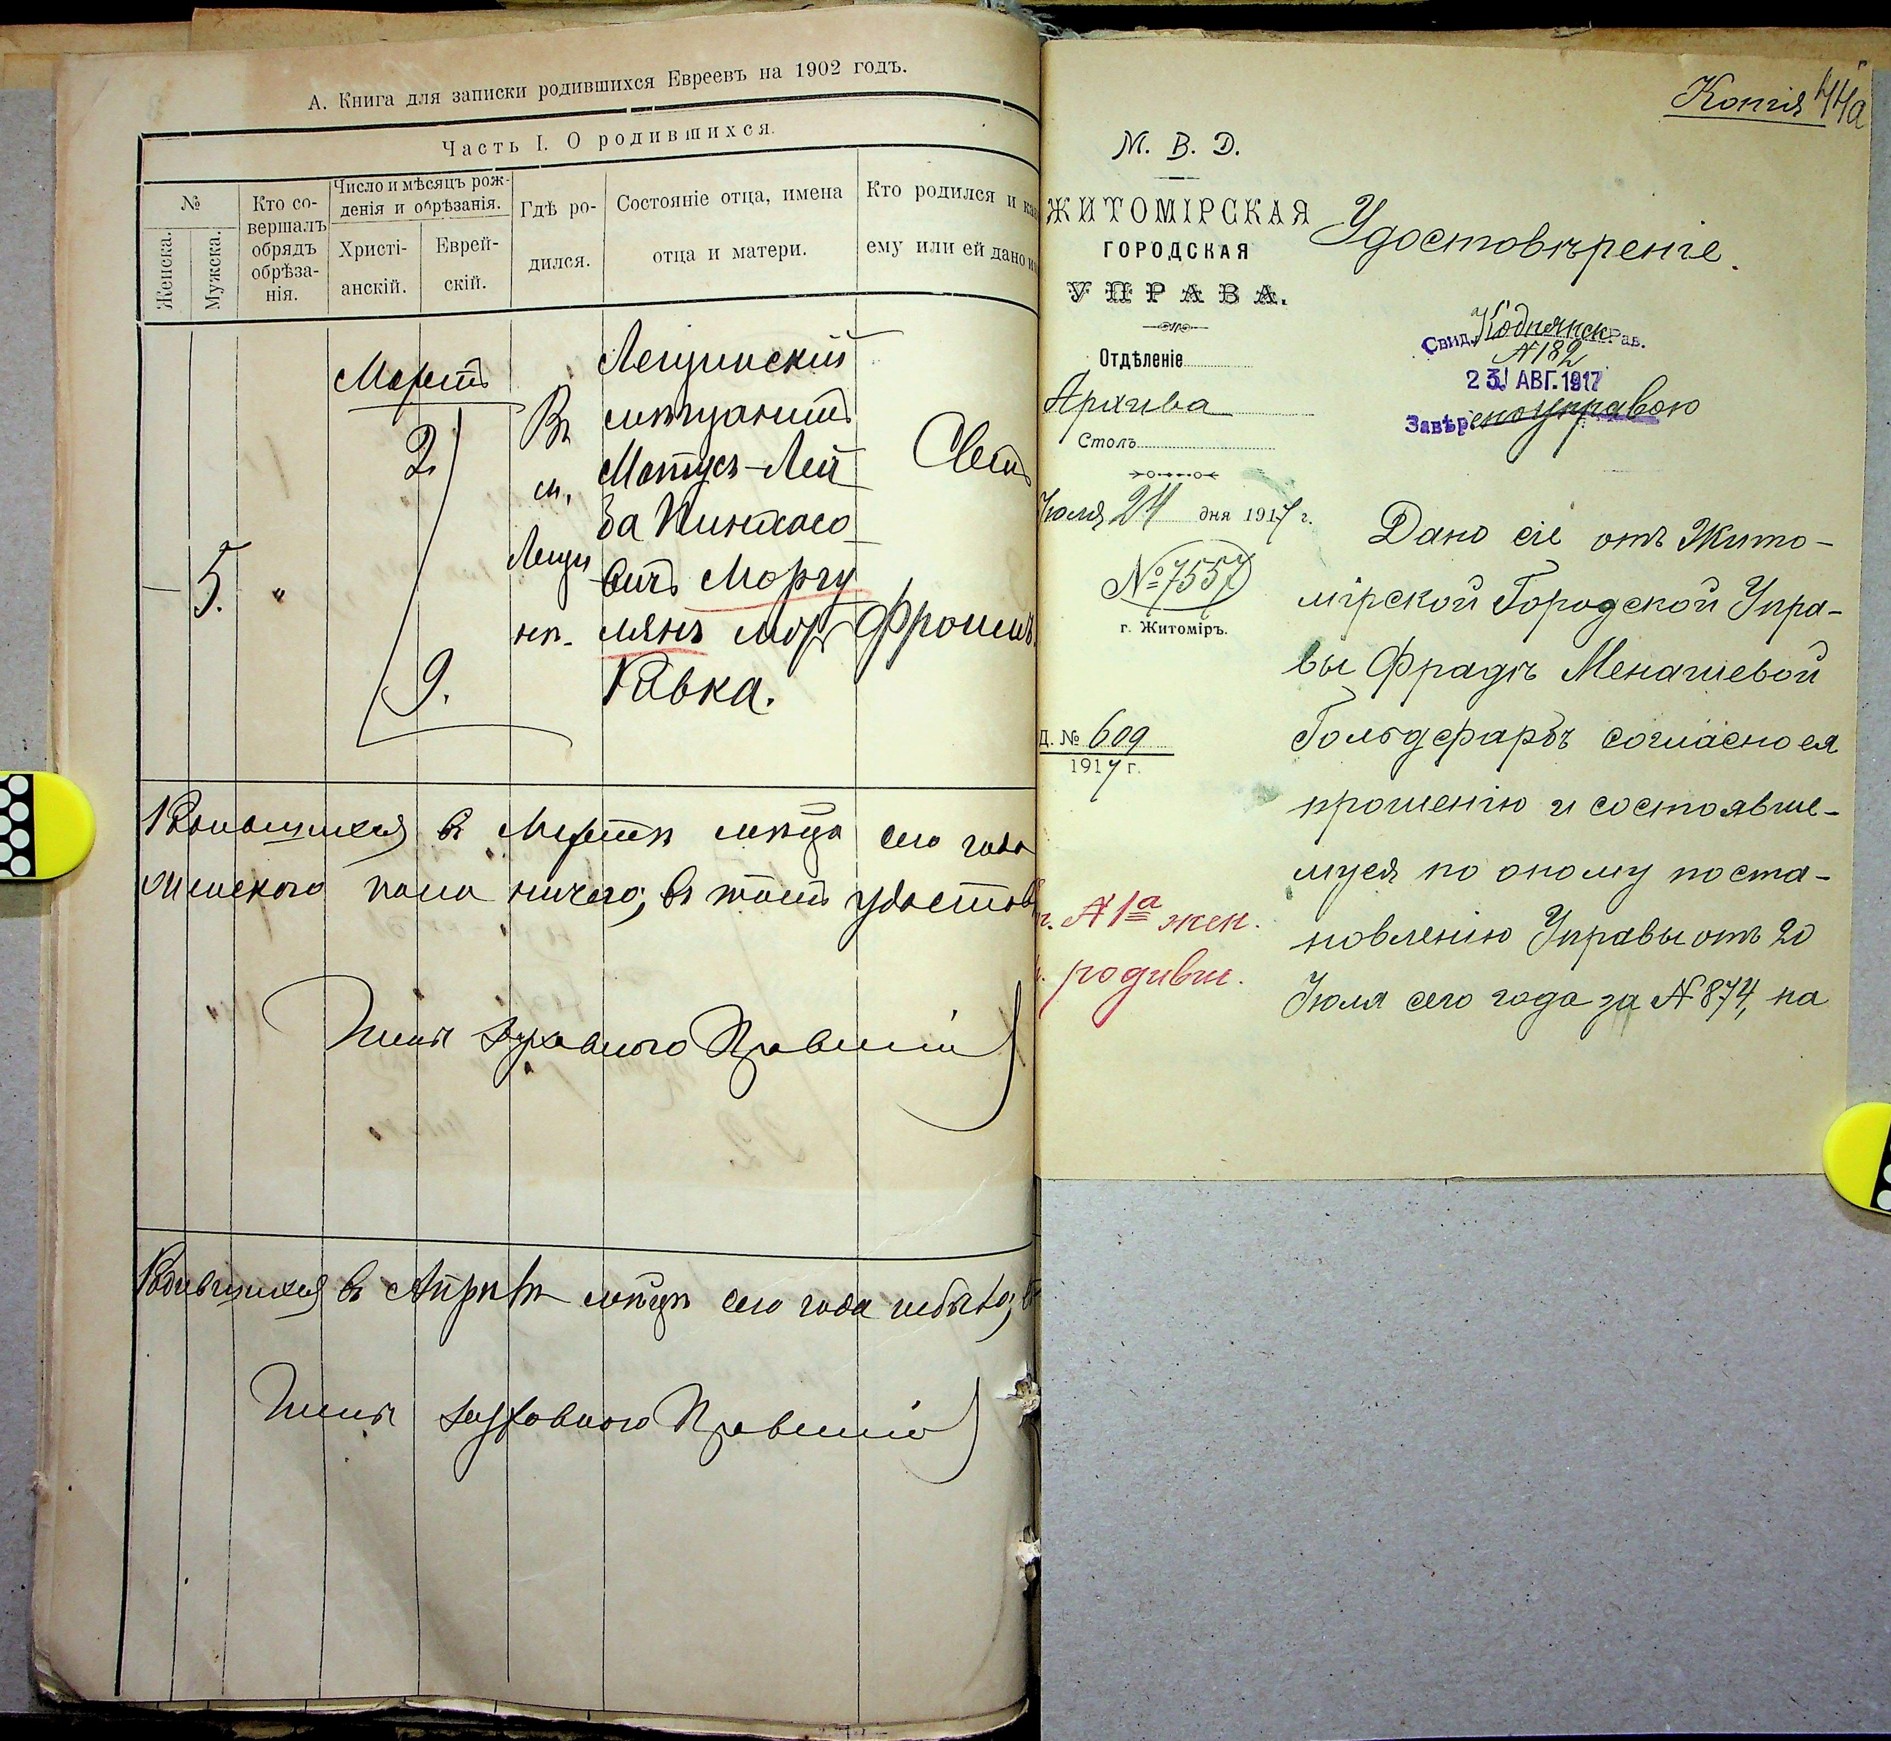 А. Книга для записки родившихся Евреевъ на 1902 годъ.
Часть I. О родившихся.
№
Женска.
Мужска.
Кто со-
вершалъ
обрядъ
обрѣза-
нія.
Число и мѣсяцъ рож-
денія и обрѣзанія.
Христі-
анскій.
Еврей-
скій.
Гдѣ ро-
дился.
Состояніе отца, имена
отца и матери.
Кто родился и
ему или ей дано
5.
"
Мартъ
2.
9.
Въ
м.
Лещи
нѣ.
Лещинскій
мѣщанинъ
Мотусь-Лей
ба Пинхасо
вичъ Моргу
лянъ
Ривка.
Сынъ
Фроимъ
Родившихся въ Мартѣ мѣсяца сего года
женскаго пола ничего; въ томъ
Члены Духовнаго Правленія
Родившихся въ Апрѣлѣ мѣсяцѣ сего года небыло;
Члены Духовнаго Правленія
Копія
44а
М. В. Д.
ЖИТОМІРСКАЯ
ГОРОДСКАЯ
УПРАВА.
Отдѣленіе
Архива
Столъ
Іюля 24 дня 1917 г.
№ 7557
г. Житоміръ.
Д. № 609
1917 г.
г. № 1а жен.
родивш.
Удостовѣреніе.
Свид. Коднянск. Рав.
№ 182
23 АВГ. 1917
Завѣрено управою
Дано сіе отъ Жито-
мірской Городской Упра-
вы Фрадѣ Менашевой
Гольдфарбъ согласно ея
прошенію и состоявше-
муся по оному поста-
новленію Управы отъ 20
Іюля сего года за № 874, на